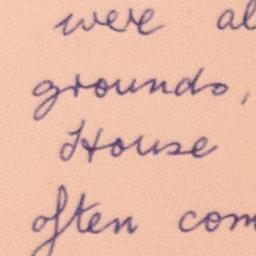 were al
grounds,
House
often com